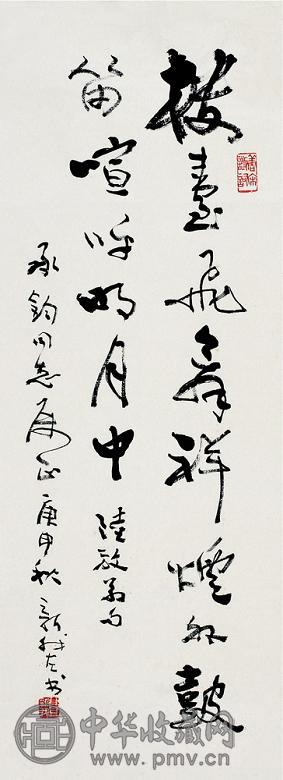 楼臺飛舞祥煙外鼓
笛喧呼明月中 陸放翁句
承鈞同志属正 庚申秋 新我左书
中华收藏网
www.pmv.cn